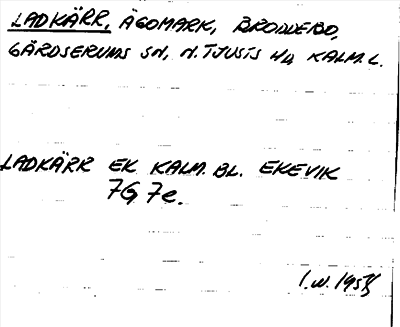 LADKÄRR, ÄGOMARK, BRODDEBO,
GÄRDSERUMS SN, N. TJUSTS HD KALM. L.
LADKÄRR EK KALM. BL. EKEVIK
7G 7e.
I.W.